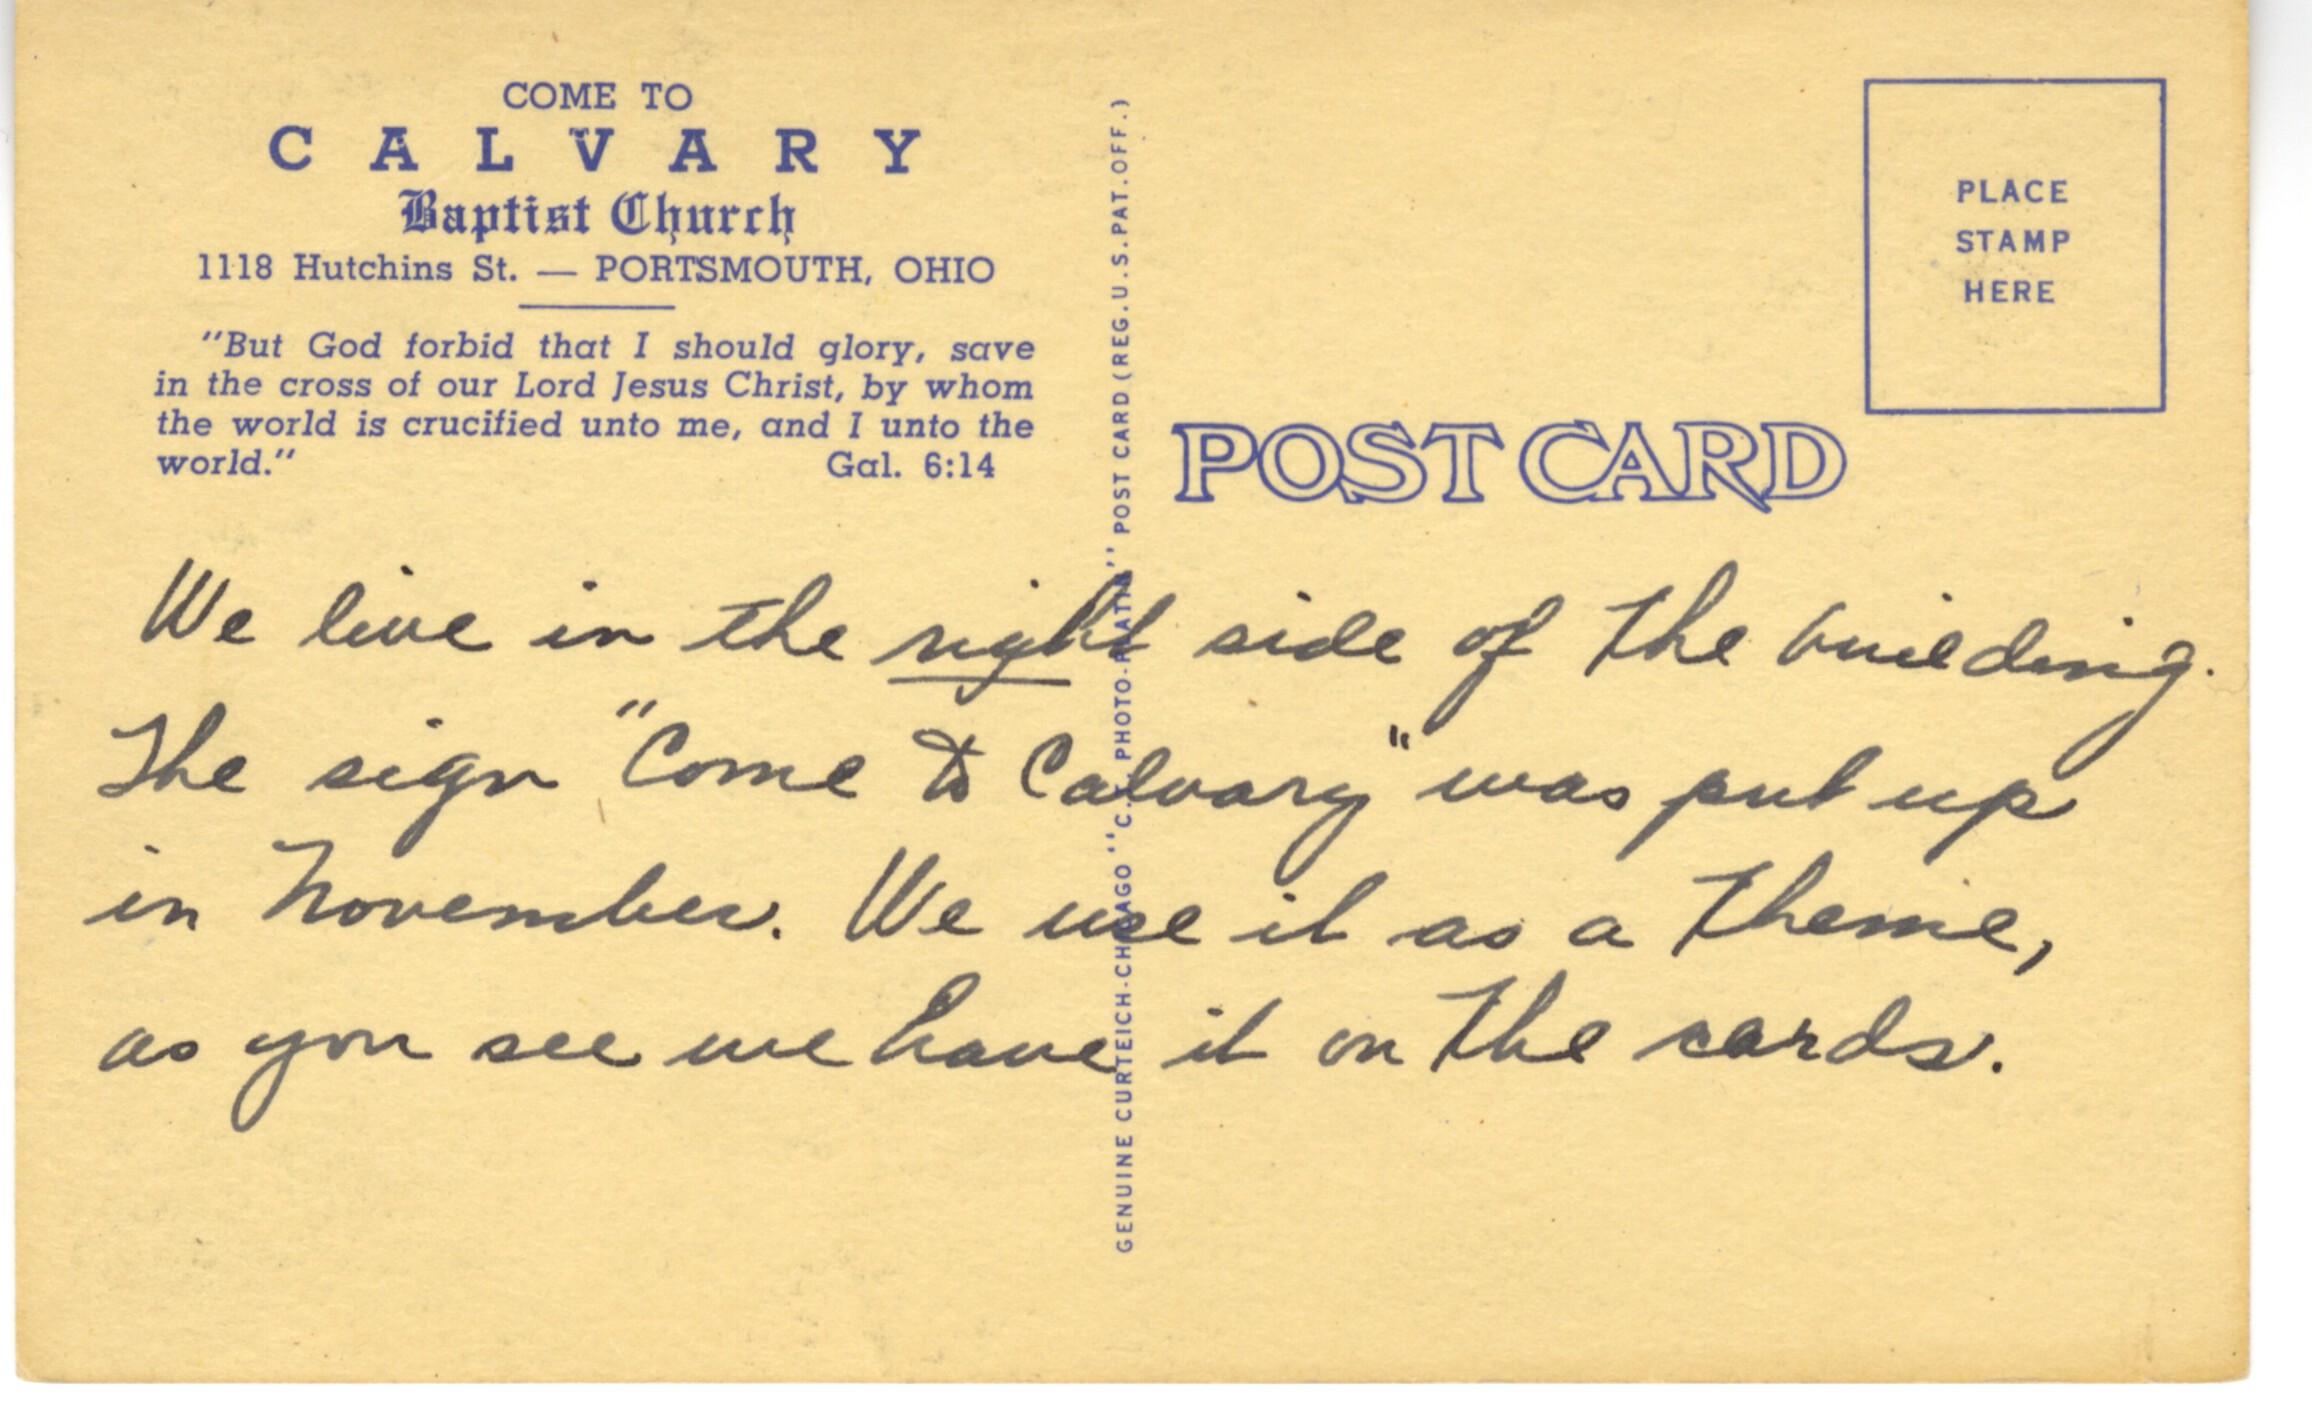 COME TO
CALVARY
Baptist Church
1118 Hutchins St. — PORTSMOUTH, OHIO
"But God forbid that I should glory, save
in the cross of our Lord Jesus Christ, by whom
the world is crucified unto me, and I unto the
world." Gal. 6:14
PLACE
STAMP
HERE
POST CARD
GENUINE CURTEICH-CHICAGO "C.T. PHOTO-PLATIN" POST CARD (REG. U.S. PAT. OFF.)
We live in the right side of the building.
The sign "Come to Calvary" was put up
in November. We use it as a theme,
as you see we have it on the cards.